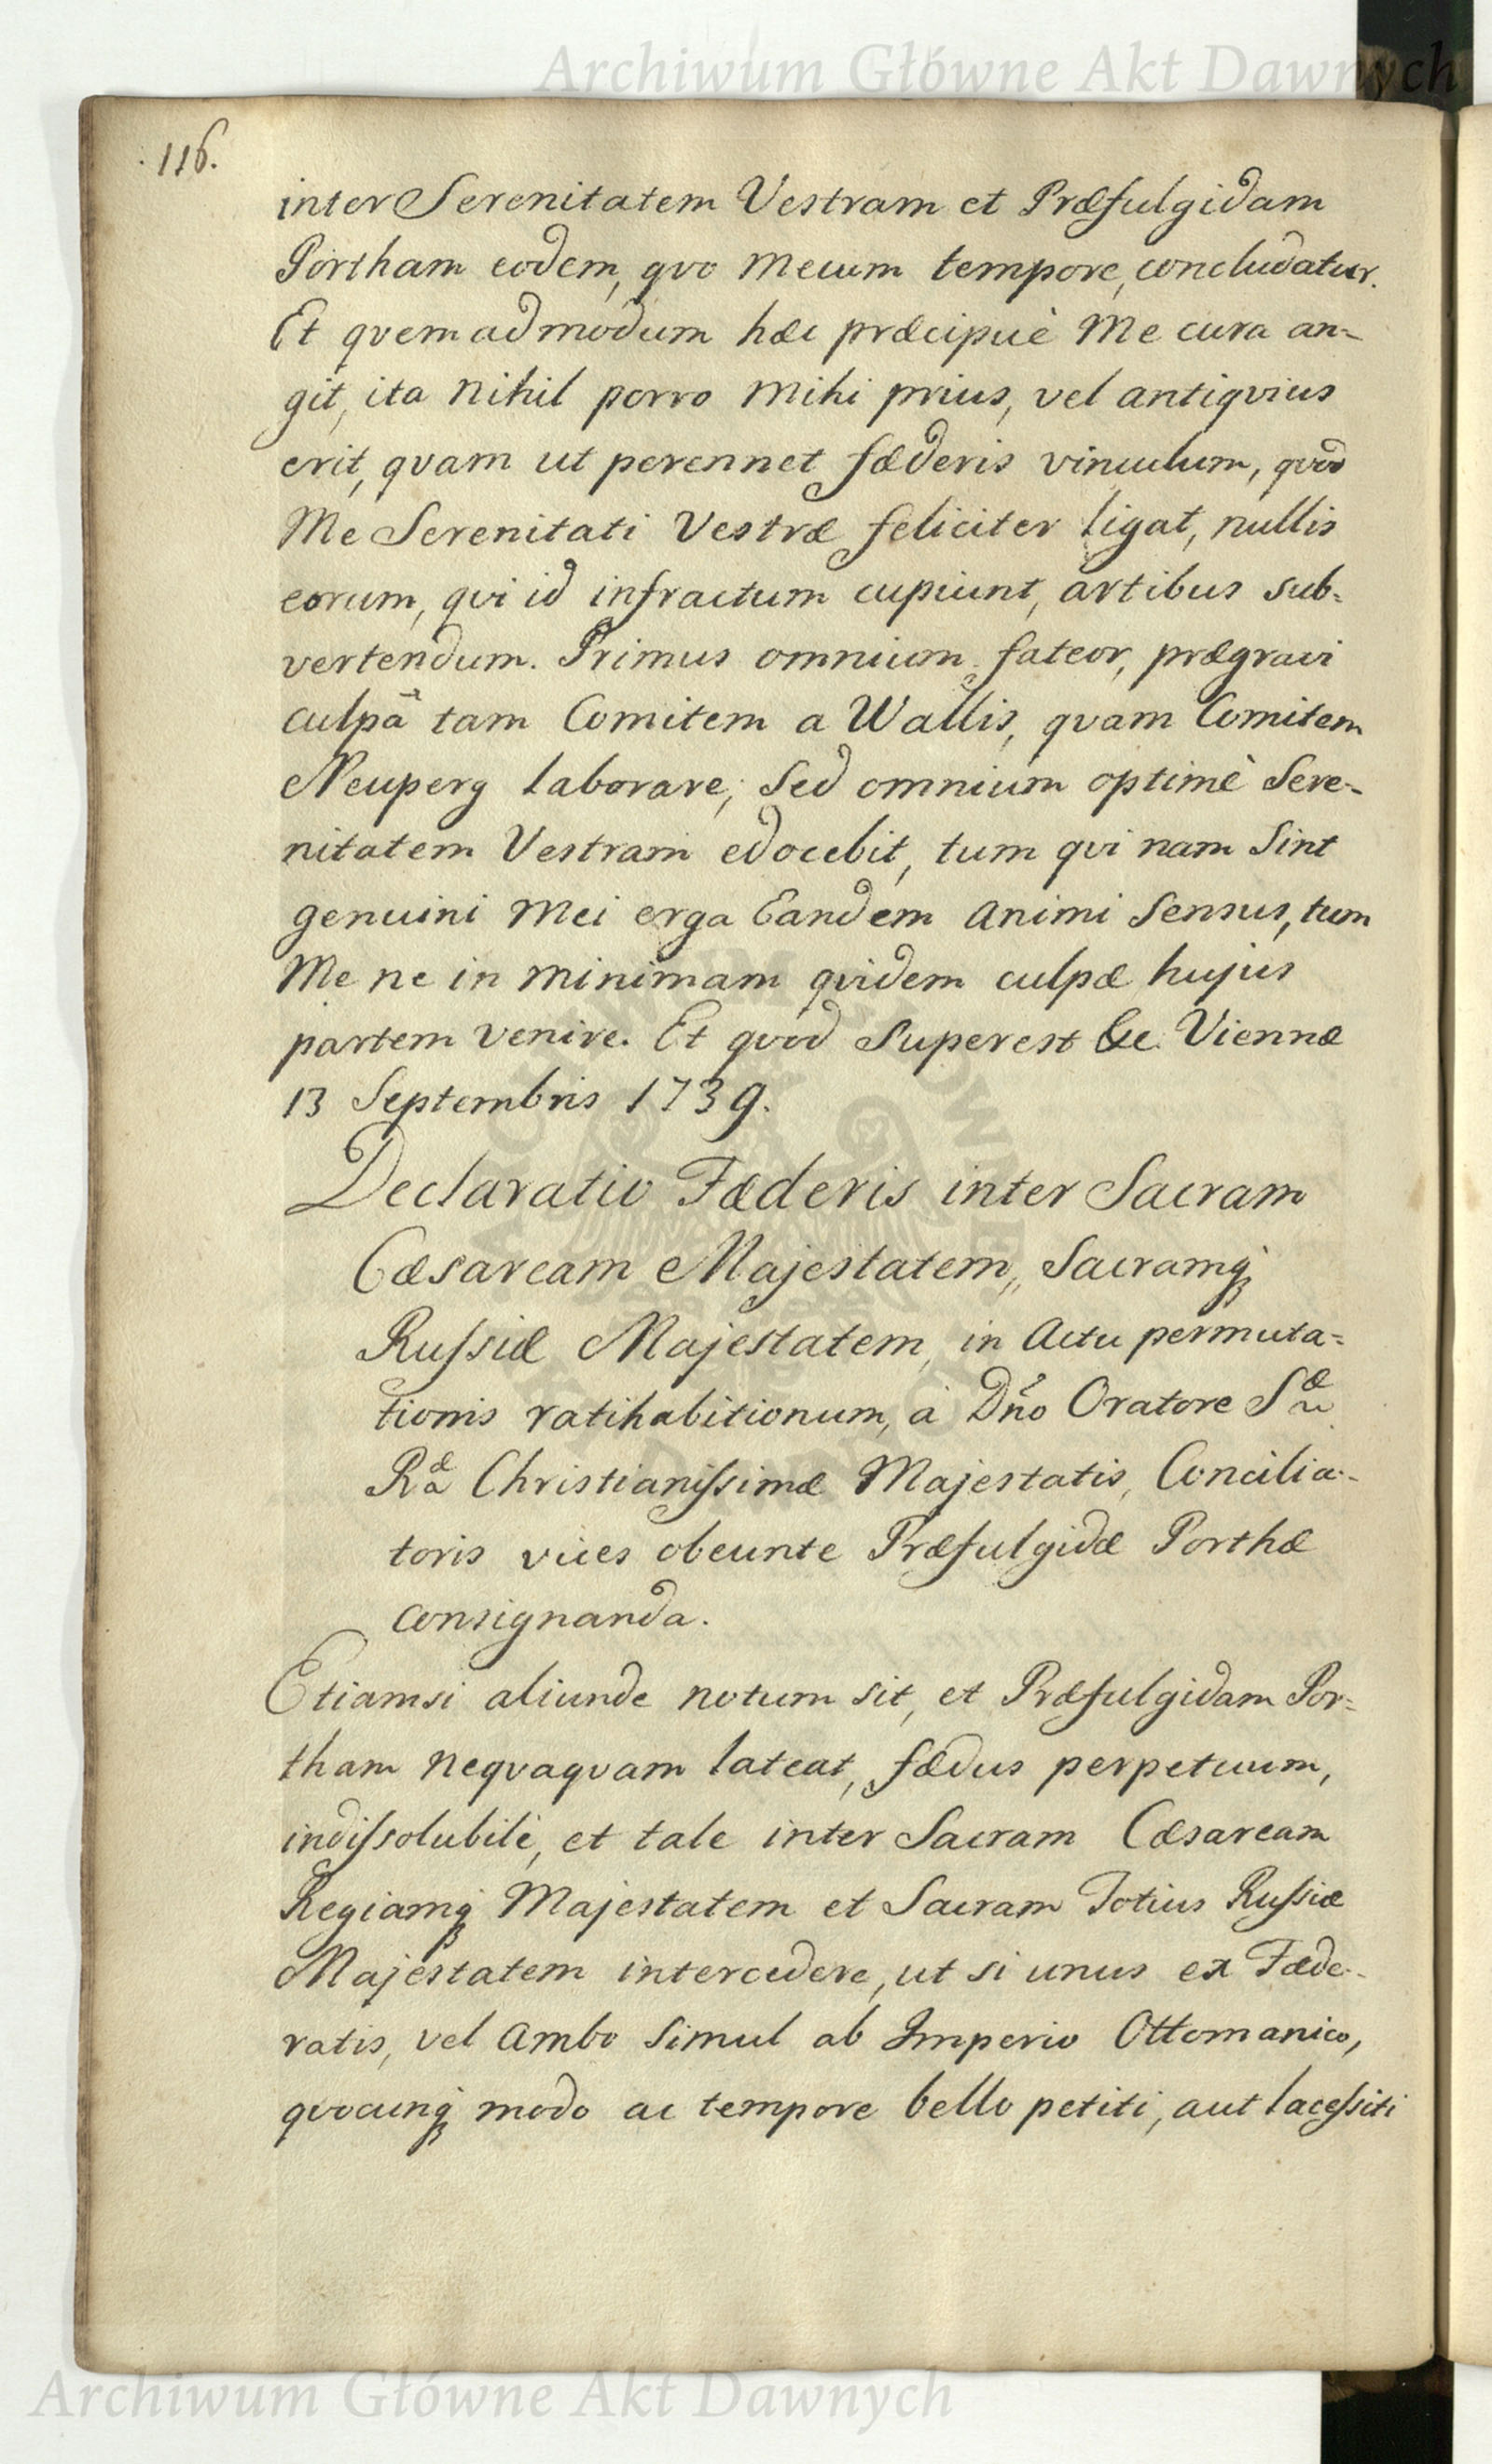 Archiwum Główne Akt Dawnych
116.
inter Serenitatem Vestram et Præfulgidam
Portham eodem, qvo mecum tempore, concludatur.
Et qvemadmodum hæc præcipuè Me cura an-
git, ita nihil porro mihi prius, vel antiqvius
erit, qvam ut perennet fæderis vinculum, qvod
Me Serenitati Vestræ feliciter ligat, nullis
eorum, qvi id infractum cupiunt, artibus sub-
vertendum. Primus omnium fateor, prægravi
culpâ tam Comitem a Wallis, qvam Comitem
Neuperg laborare; Sed omnium optimè Sere-
nitatem Vestram edocebit, tum qvi nam Sint
genuini Mei erga Eandem animi Sensus, tum
Me ne in minimam qvidem culpæ hujus
partem venire. Et qvod Superest &c. Viennæ
13 Septembris 1739.
Declaratio Fæderis inter Sacram
Cæsaream Majestatem, Sacramq́
Ruſsiæ Majestatem, in Actu permuta-
tionis ratihabitionum, à Dño Oratore Sæ
Ræ Christianiſsimæ Majestatis, Concilia-
toris vices obeunte Præfulgidæ Porthæ
consignanda.
Etiamsi aliunde notum sit, et Præfulgidam Por-
tham neqvaqvam lateat, fædus perpetuum,
indiſsolubile, et tale inter Sacram Cæsaream
Regiamq́ Majestatem et Sacram Totius Ruſsiæ
Majestatem intercedere, ut si unus ex Fæde-
ratis, vel ambo Simul ab Imperio Ottomanico,
qvocunq́ modo ac tempore bello petiti, aut laceſsiti
Archiwum Główne Akt Dawnych